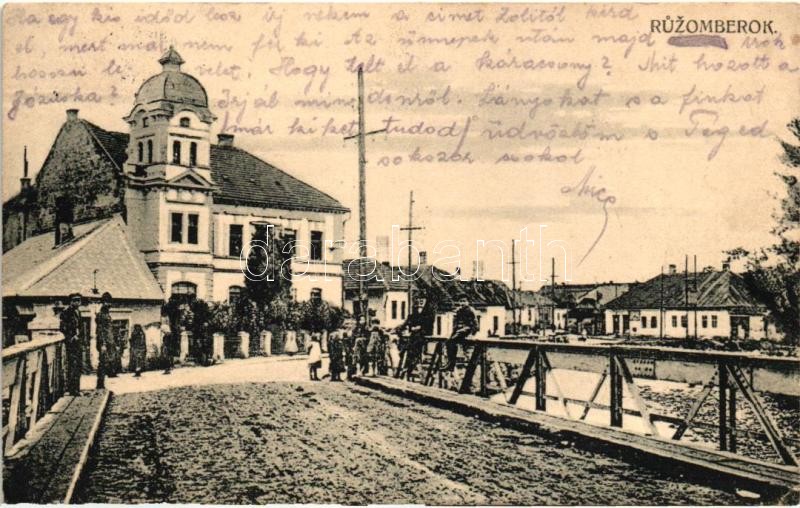 RŮŽOMBEROK.
Ha egy kis időd lesz írj nekem a címet Zolitól kérd
el, mert már nem fér ki Az ünnepek után majd írok
hosszú levelet. Hogy telt el a karácsony? Mit hozott a
Jézuska? Írjál mindenről. Lányokat s a fiukat
már kiket tudod üdvözlöm s Téged
sokszor csókol
Mici
darabanth